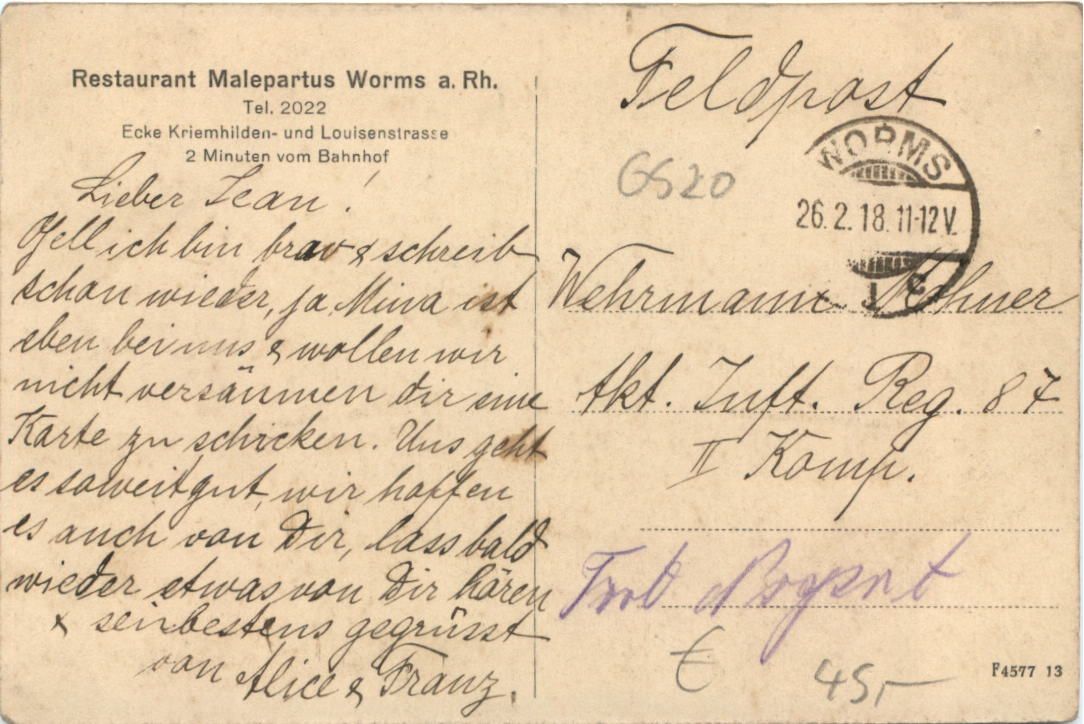 Restaurant Malepartus Worms a. Rh.
Tel. 2022
Ecke Kriemhilden- und Louisenstrasse
2 Minuten vom Bahnhof
Lieber Jean!
Gell ich bin brav & schreib
schon wieder, ja Mina ist
eben bei uns & wollen wir
nicht versäumen dir eine
Karte zu schicken. Uns geht
es soweit gut, wir hoffen
es auch von Dir, lass bald
wieder etwas von Dir hören
& sei bestens gegrüsst
von Alice & Franz.
Feldpost
GS20
WORMS
26.2.18.11-12V.
1 c
Wehrmann
Akt. Inft. Reg. 87
II Komp.
€ 45,-
F4577 13